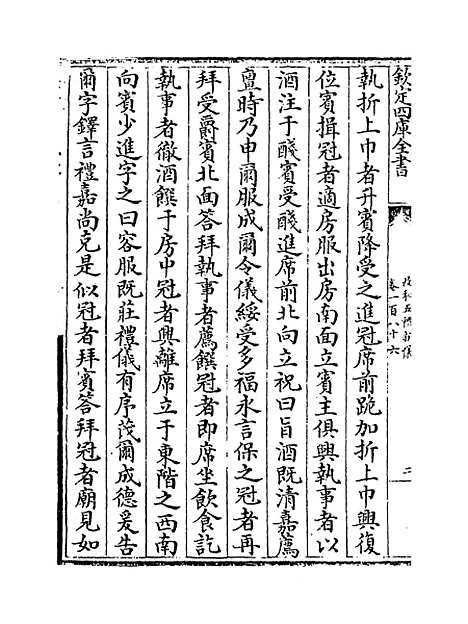 欽定四庫全書
政和五禮新儀
卷一百八十六
三
執折上巾者升賓降受之進冠席前跪加折上巾興復
位賓揖冠者適房服出房南面立賓主俱興執事者以
酒注于醆賓受醆進席前北向立祝曰旨酒既清嘉薦
亶時乃申爾服成爾令儀綏受多福永言保之冠者再
拜受爵賓北面答拜執事者薦饌冠者即席坐飲食訖
執事者徹酒饌于房中冠者興離席立于東階之西南
向賓少進字之曰容服既莊禮儀有序茂爾成德爰告
爾字鐸言禮嘉尚克是似冠者拜賓答拜冠者廟見如